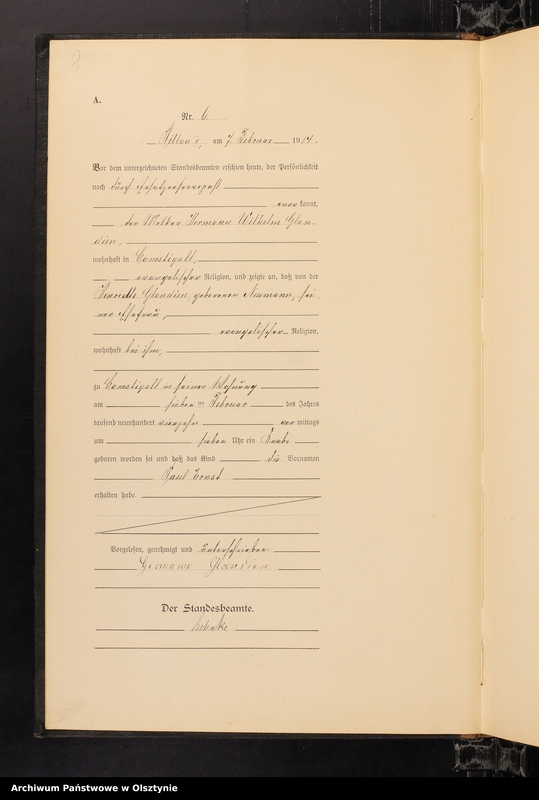 7
A.
Nr. 6.
Pillau, am 7. Februar 1914.
Vor dem unterzeichneten Standesbeamten erschien heute, der Persönlichkeit
nach durch
anerkannt,
der Melker Hermann Wilhelm Glan-
dien,
wohnhaft in Camstigall,
evangelischer Religion, und zeigte an, daß von der
Henriette Glandien, geborenen Neumann, sei-
ner Ehefrau,
evangelischer Religion,
wohnhaft bei ihm,
zu Camstigall in seiner Wohnung
am sieben ten Februar des Jahres
tausend neunhundert vierzehn vor mittags
um sieben Uhr ein Knabe
geboren worden sei und daß das Kind die Vornamen
Paul Ernst
erhalten habe.
Vorgelesen, genehmigt und unterschrieben
Hermann Glandien
Der Standesbeamte.
Archiwum Państwowe w Olsztynie